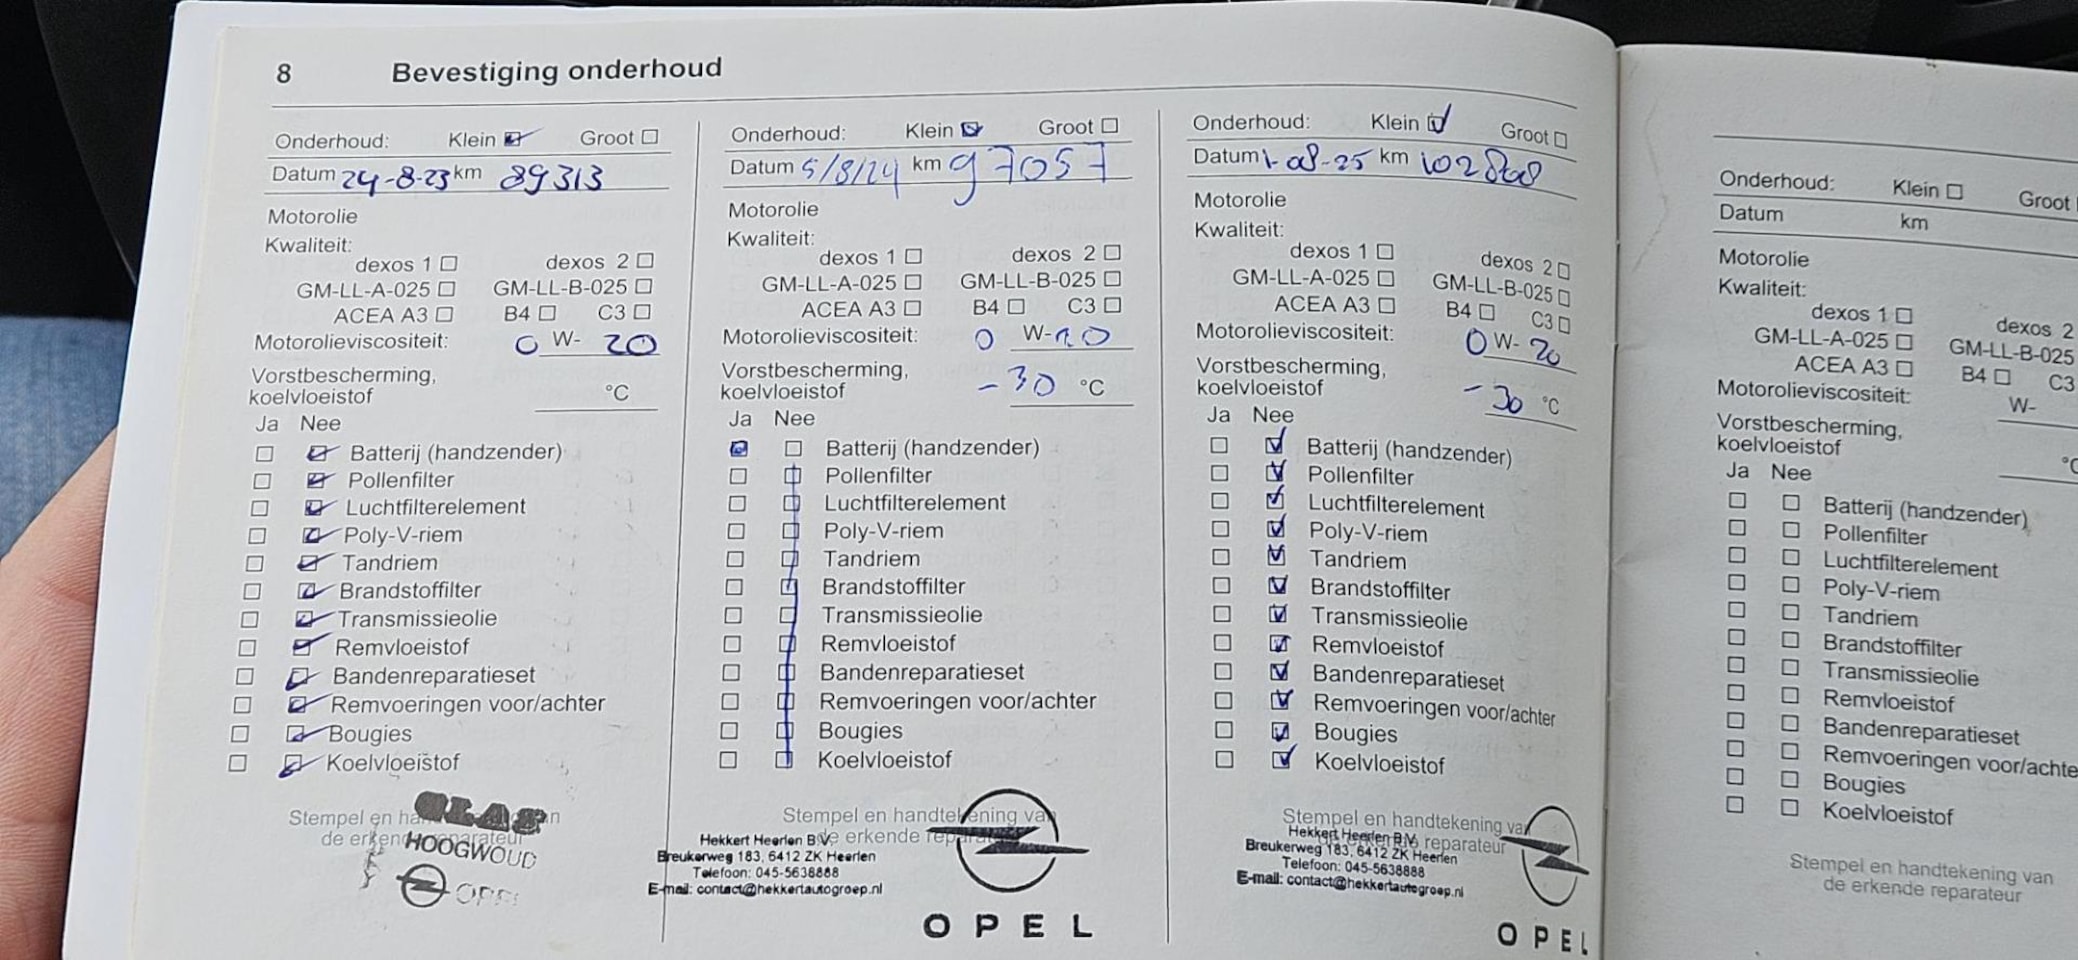 8 Bevestiging onderhoud
Onderhoud: Klein Groot
Datum 24-8-23 km 89313
Motorolie
Kwaliteit:
dexos 1 dexos 2
GM-LL-A-025 GM-LL-B-025
ACEA A3 B4 C3
Motorolieviscositeit: 0 W- 20
Vorstbescherming,
koelvloeistof °C
Ja Nee
Batterij (handzender)
Pollenfilter
Luchtfilterelement
Poly-V-riem
Tandriem
Brandstoffilter
Transmissieolie
Remvloeistof
Bandenreparatieset
Remvoeringen voor/achter
Bougies
Koelvloeistof
Stempel en
de reparateur
HOOGWOUD
OPEL
Onderhoud: Klein Groot
Datum 5/8/24 km 97057
Motorolie
Kwaliteit:
dexos 1 dexos 2
GM-LL-A-025 GM-LL-B-025
ACEA A3 B4 C3
Motorolieviscositeit: 0 W-
Vorstbescherming,
koelvloeistof -30 °C
Ja Nee
Batterij (handzender)
Pollenfilter
Luchtfilterelement
Poly-V-riem
Tandriem
Brandstoffilter
Transmissieolie
Remvloeistof
Bandenreparatieset
Remvoeringen voor/achter
Bougies
Koelvloeistof
Stempel en handtekening van
de erkende
Hekkert Heerlen B.V.
Breukerweg 183, 6412 ZK Heerlen
Telefoon: 045-5638888
E-mail: contact@hekkertautogroep.nl
OPEL
Onderhoud: Klein Groot
Datum 1-08-25 km 102808
Motorolie
Kwaliteit:
dexos 1 dexos 2
GM-LL-A-025 GM-LL-B-025
ACEA A3 B4 C3
Motorolieviscositeit: 0 W- 20
Vorstbescherming,
koelvloeistof -30 °C
Ja Nee
Batterij (handzender)
Pollenfilter
Luchtfilterelement
Poly-V-riem
Tandriem
Brandstoffilter
Transmissieolie
Remvloeistof
Bandenreparatieset
Remvoeringen voor/achter
Bougies
Koelvloeistof
Stempel en handtekening van
reparateur
Hekkert Heerlen B.V.
Breukerweg 183, 6412 ZK Heerlen
Telefoon: 045-5638888
E-mail: contact@hekkertautogroep.nl
OPEL
Onderhoud: Klein Groot
Datum km
Motorolie
Kwaliteit:
dexos 1 dexos 2
GM-LL-A-025 GM-LL-B-025
ACEA A3 B4 C3
Motorolieviscositeit: W-
Vorstbescherming,
koelvloeistof
Ja Nee
Batterij (handzender)
Pollenfilter
Luchtfilterelement
Poly-V-riem
Tandriem
Brandstoffilter
Transmissieolie
Remvloeistof
Bandenreparatieset
Remvoeringen voor/achte
Bougies
Koelvloeistof
Stempel en handtekening van
de erkende reparateur